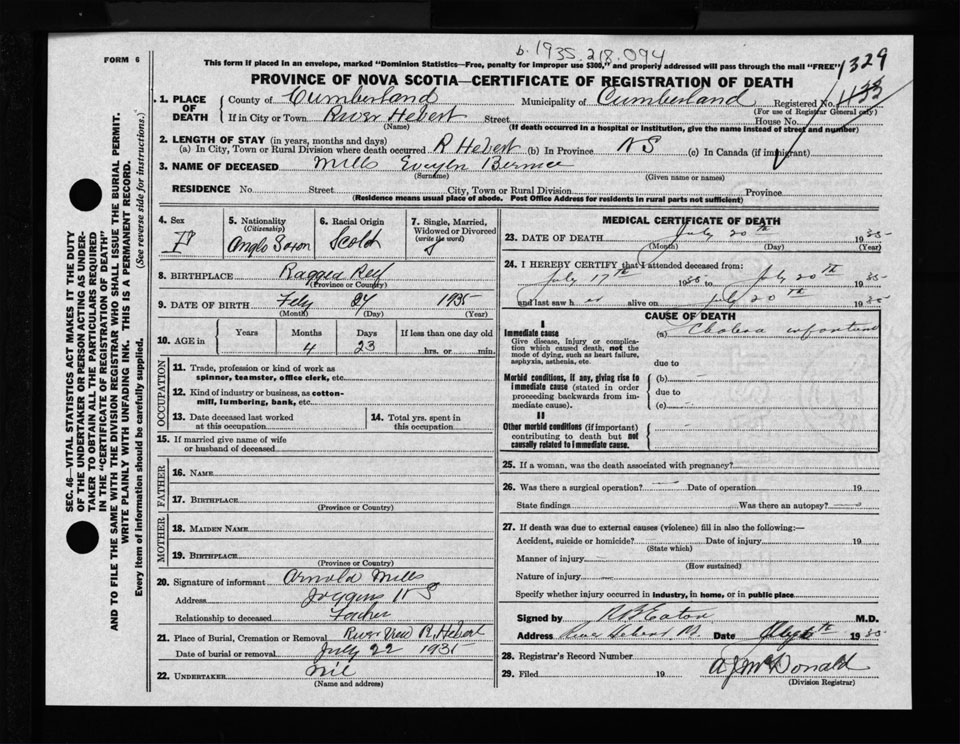 b. 1935.218.094
FORM 6
This form if placed in an envelope, marked "Dominion Statistics—Free, penalty for improper use $300," and properly addressed will pass through the mail "FREE"
1329
PROVINCE OF NOVA SCOTIA—CERTIFICATE OF REGISTRATION OF DEATH
1. PLACE OF DEATH
County of Cumberland Municipality of Cumberland Registered No. 1133
(For use of Registrar General only)
If in City or Town River Hebert Street House No.
(Name) (If death occurred in a hospital or institution, give the name instead of street and number)
2. LENGTH OF STAY (in years, months and days)
(a) In City, Town or Rural Division where death occurred R Hebert (b) In Province NS (c) In Canada (if immigrant)
3. NAME OF DECEASED Mills Evelyn Bernice
(Surname) (Given name or names)
RESIDENCE No. Street City, Town or Rural Division Province
(Residence means usual place of abode. Post Office Address for residents in rural parts not sufficient)
4. Sex F
5. Nationality (Citizenship) Anglo Saxon
6. Racial Origin
7. Single, Married, Widowed or Divorced (write the word) S
8. BIRTHPLACE Ragged Reef
(Province or Country)
9. DATE OF BIRTH 24 1935
(Month) (Day) (Year)
10. AGE in Years Months Days If less than one day old
4 23 hrs. or min.
OCCUPATION
11. Trade, profession or kind of work as spinner, teamster, office clerk, etc.
12. Kind of industry or business, as cotton-mill, lumbering, bank, etc.
13. Date deceased last worked at this occupation
14. Total yrs. spent in this occupation
15. If married give name of wife or husband of deceased
FATHER
16. NAME
17. BIRTHPLACE
(Province or Country)
MOTHER
18. MAIDEN NAME
19. BIRTHPLACE
(Province or Country)
20. Signature of informant Arnold Mills
Address Joggins NS
Relationship to deceased Father
21. Place of Burial, Cremation or Removal River View R. Hebert
Date of burial or removal July 22 1935
22. UNDERTAKER nil
(Name and address)
MEDICAL CERTIFICATE OF DEATH
23. DATE OF DEATH July 20th 1935
(Month) (Day) (Year)
24. I HEREBY CERTIFY that I attended deceased from:
July 17th 1935 to July 20th 1935
and last saw h er alive on July 20th 1935
CAUSE OF DEATH
I
Immediate cause (a) Cholera infantum
Give disease, injury or complication which caused death, not the mode of dying, such as heart failure, asphyxia, asthenia, etc.
due to
Morbid conditions, if any, giving rise to immediate cause (stated in order proceeding backwards from immediate cause).
(b)
due to
(c)
II
Other morbid conditions (if important) contributing to death but not causally related to immediate cause.
25. If a woman, was the death associated with pregnancy?
26. Was there a surgical operation? Date of operation 19
State findings Was there an autopsy?
27. If death was due to external causes (violence) fill in also the following:—
Accident, suicide or homicide? Date of injury 19
(State which)
Manner of injury
(How sustained)
Nature of injury
Specify whether injury occurred in industry, in home, or in public place
Signed by Eaton M.D.
Address River Hebert Date 1935
28. Registrar's Record Number
29. Filed 19 A J McDonald
(Division Registrar)
SEC. 46—VITAL STATISTICS ACT MAKES IT THE DUTY
OF THE UNDERTAKER OR PERSON ACTING AS UNDERTAKER TO OBTAIN ALL THE PARTICULARS REQUIRED
IN THE "CERTIFICATE OF REGISTRATION OF DEATH"
AND TO FILE THE SAME WITH THE DIVISION REGISTRAR WHO SHALL ISSUE THE BURIAL PERMIT.
WRITE PLAINLY WITH UNFADING INK. THIS IS A PERMANENT RECORD.
Every item of information should be carefully supplied. (See reverse side for instructions.)